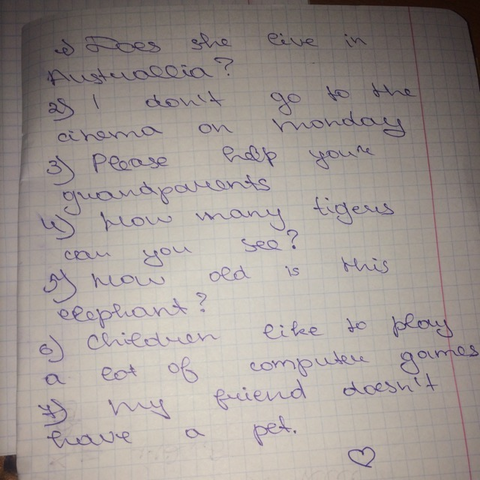 1) Does she live in
Australlia?
2) I don't go to the
cinema on monday
3) Please help your
grandparents
4) How many tigers
can you see?
5) How old is this
elephant?
6) Children like to play
a lot of computer games
7) My friend doesn't
have a pet.